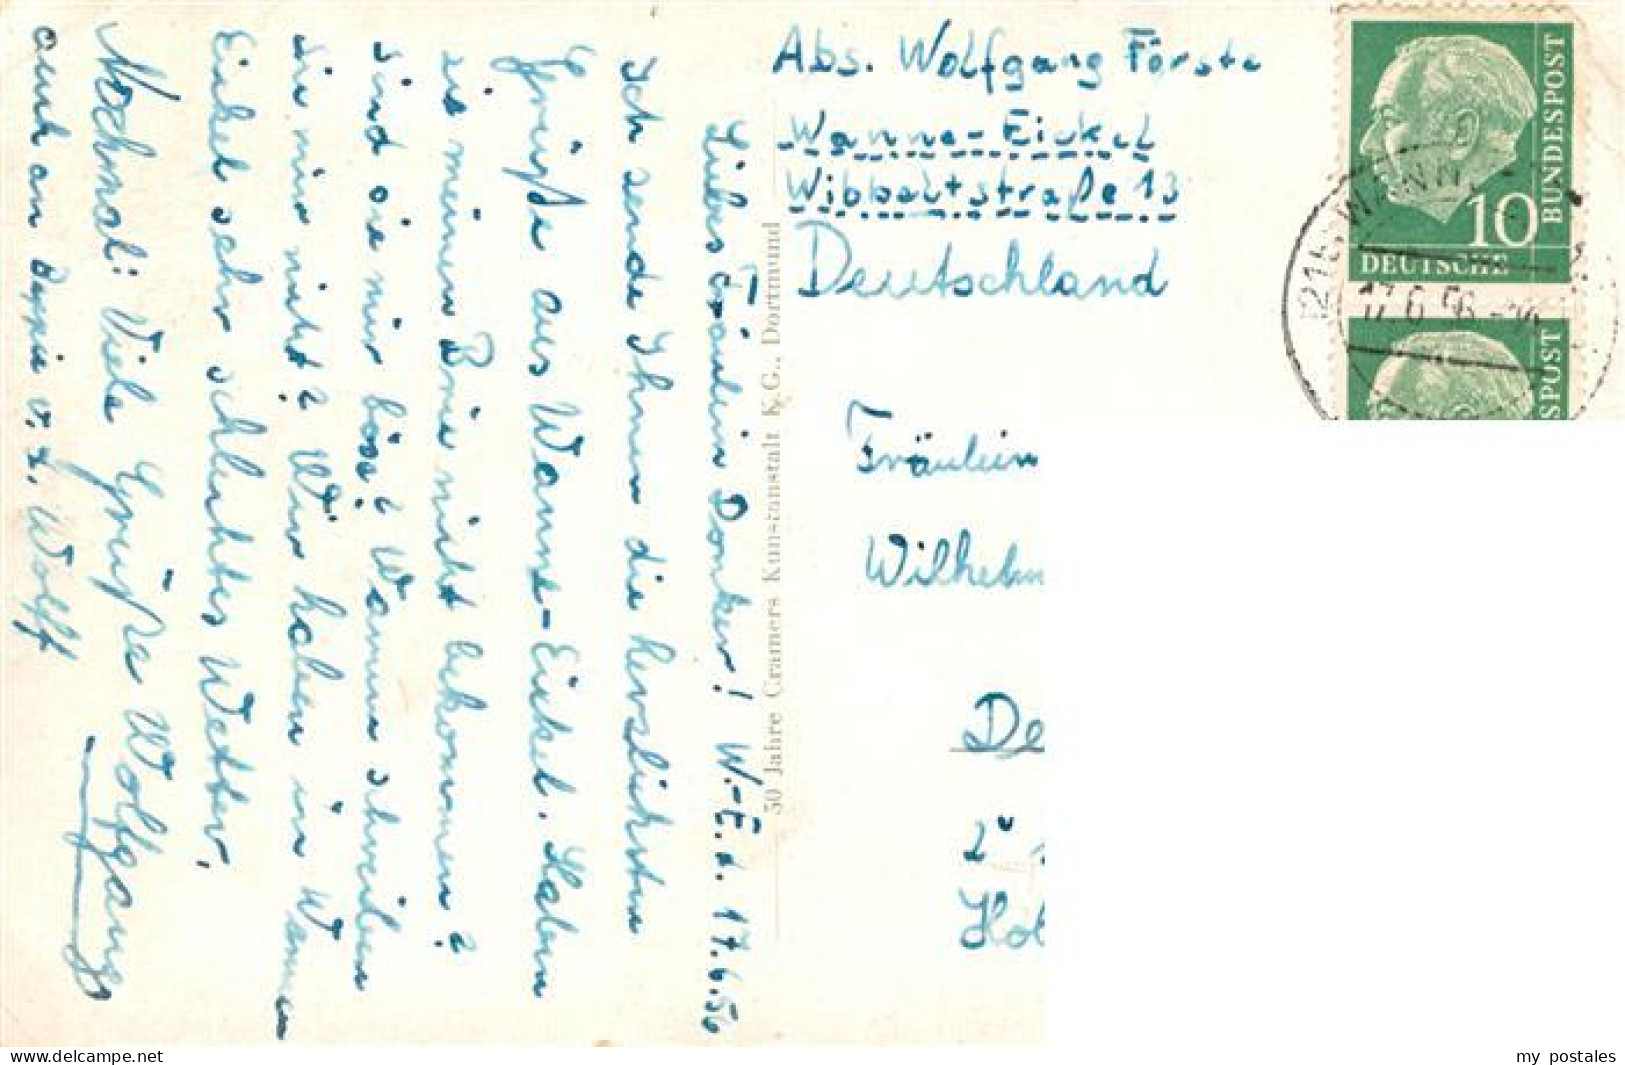 Abs. Wolfgang Förste
Wanne-Eickel
Wibbeltstraße 13
Deutschland
Liebes Fräulein Donker! W.-E. d. 17.6.56
Ich sende Ihnen die herzlichsten
Grüße aus Wanne-Eickel. Haben
sie meinen Brie nicht bekommen?
Sind sie mir böse? Warum schreiben
sie mir nicht? Wir haben in Wanne
Eickel sehr schlechtes Wetter.
Nochmal: Viele Grüße Wolfgang
auch an Beppie v. Wolff
50 Jahre Cramers Kunstanstalt K.G., Dortmund
Fräulein
Wilhelm
De
2e
Hol
10
DEUTSCHE
BUNDESPOST
WANNE-
17.6.56
SPOST
www.delcampe.net
my_postales